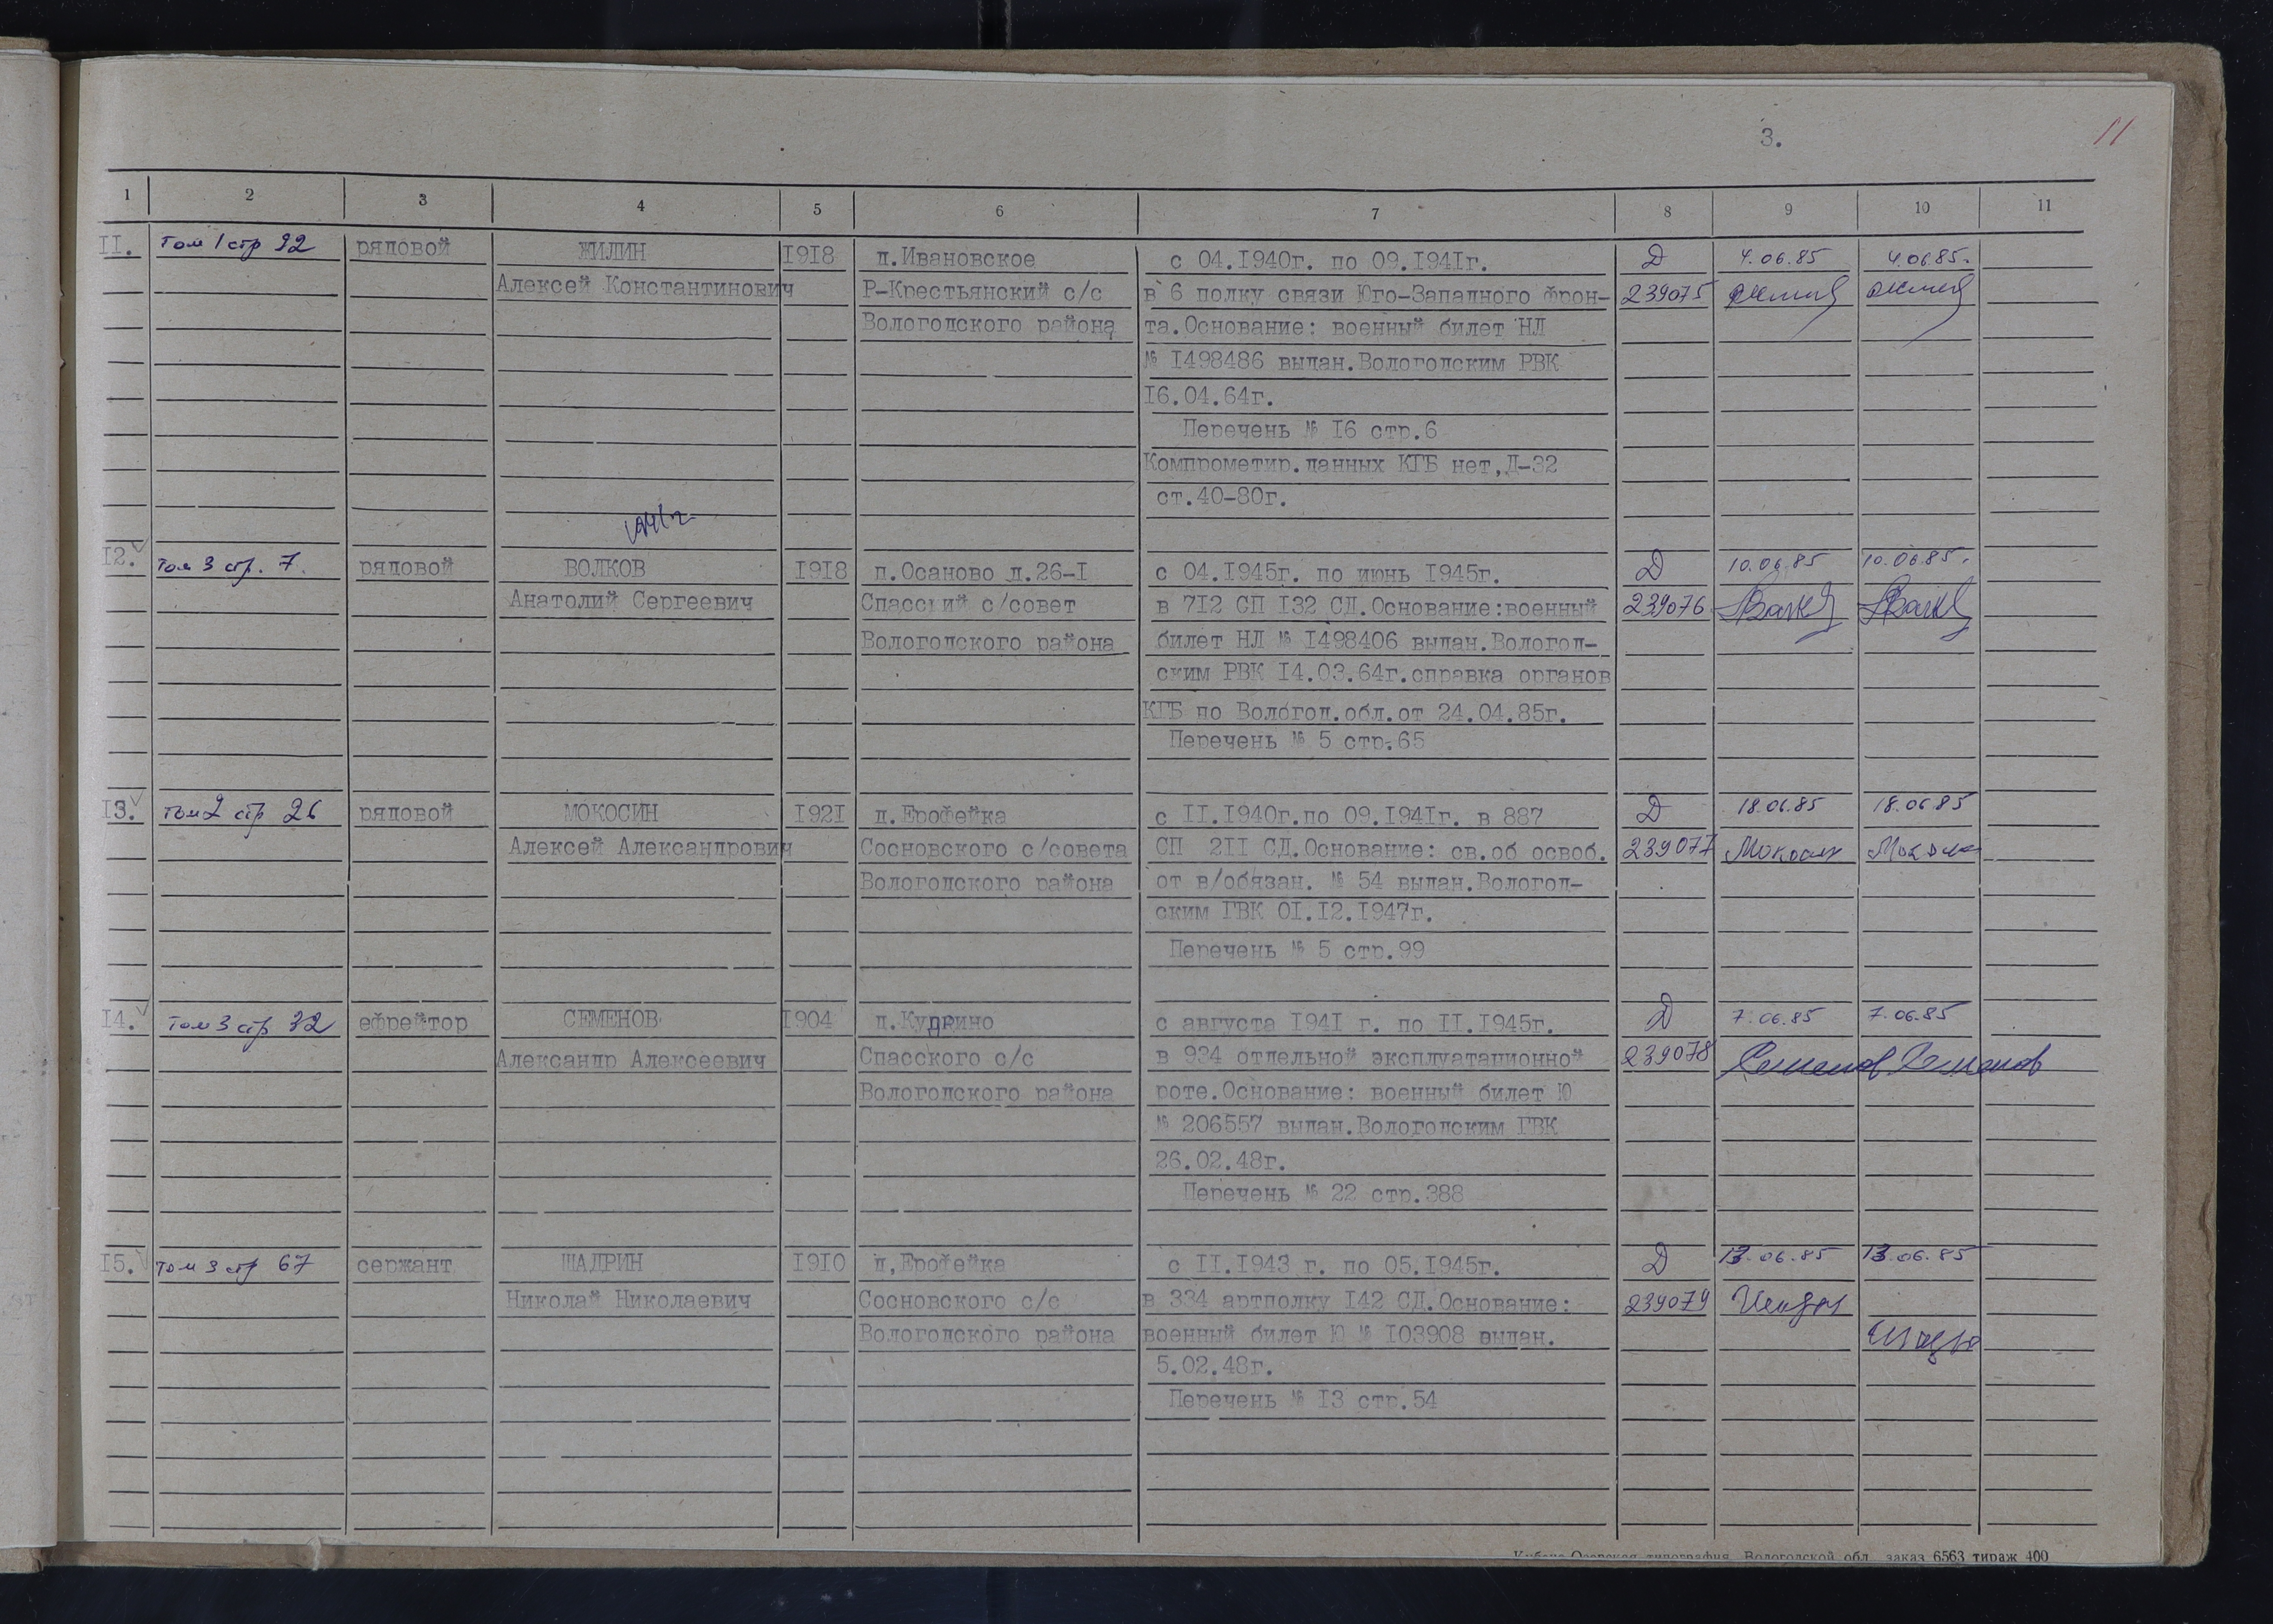 3.
11
1 2 3 4 5 6 7 8 9 10 11
II. Том 1 стр 92 рядовой ЖИЛИН 1918 д.Ивановское с 04.1940г. по 09.1941г. Д 4.06.85 4.06.85.
Алексей Константинович Р-Крестьянский с/с в 6 полку связи Юго-Западного Фрон- 239075
Вологодского района та.Основание: военный билет НЛ
№ 1498486 выдан.Вологодским РВК
16.04.64г.
Перечень № 16 стр.6
Компрометир.данных КГБ нет,Д-32
ст.40-80г.
12. Том 3 стр. 7. рядовой ВОЛКОВ 1918 п.Осаново д.26-I с 04.1945г. по июнь 1945г. Д 10.06.85 10.06.85.
Анатолий Сергеевич Спасский с/совет в 712 СП 132 СД.Основание:военный 239076
Вологодского района билет НЛ № 1498406 выдан.Вологод-
ским РВК 14.03.64г.справка органов
КГБ по Вологод.обл.от 24.04.85г.
Перечень № 5 стр.65
13. Том 2 стр 26 рядовой МОКОСИН 1921 д.Ерофейка с II.1940г.по 09.1941г. в 887 Д 18.06.85 18.06.85
Алексей Александрович Сосновского с/совета СП 2II СД.Основание: св.об освоб. 239077 Мокосин
Вологодского района от в/обязан. № 54 выдан.Вологод-
ским ГВК 01.12.1947г.
Перечень № 5 стр.99
14. Том 3 стр 32 ефрейтор СЕМЕНОВ 1904 д.Кудрино с августа 1941 г. по II.1945г. Д 7.06.85 7.06.85
Александр Алексеевич Спасского с/с в 934 отдельной эксплуатационной 239078 Семенов Семенов
Вологодского района роте.Основание: военный билет Ю
№ 206557 выдан.Вологодским ГВК
26.02.48г.
Перечень № 22 стр.388
15. Том 3 стр 67 сержант ШАДРИН 1910 д,Ерофейка с II.1943 г. по 05.1945г. Д 13.06.85 13.06.85
Николай Николаевич Сосновского с/с в 334 артполку 142 СД.Основание: 239079
Вологодского района военный билет Ю № 103908 выдан.
5.02.48г.
Перечень № 13 стр.54
типография Вологодской обл. заказ 6563 тираж 400